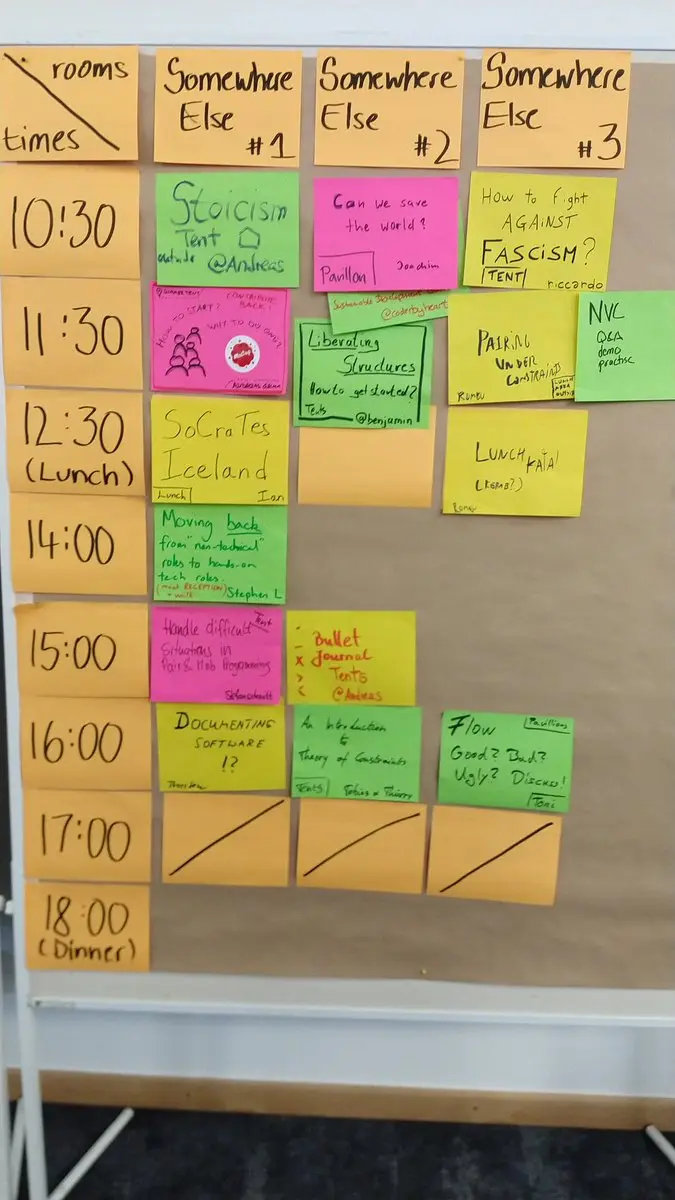 rooms
times
Somewhere
Else #1
Somewhere
Else #2
Somewhere
Else #3
10:30
Stoicism
Tent
outside @Andreas
Can we save
the world?
Pavillon Joachim
How to fight
AGAINST
FASCISM?
TENT riccardo
11:30
CONTRIBUTE
BACK!
HOW TO START?
WHY TO DO ORG?
Meetup
Sustainable Development
@coderbyheart
Liberating
Structures
How to get started?
Tents @benjamin
PAIRING
UNDER
CONSTRAINTS
NVC
Q&A
demo
practise
12:30
(Lunch)
SoCraTes
Iceland
Lunch Ian
LUNCH
KATA!
14:00
Moving back
from "non-technical"
roles to hands-on
tech roles.
(meet RECEPTION) Stephen L
15:00
Handle difficult
Situations in
Pair & Mob Programming
- Bullet
x Journal
> Tents
< @Andreas
16:00
DOCUMENTING
SOFTWARE
!?
Thorsten
An Introduction
to
Theory of Constraints
Tents Tobias + Thierry
Flow Pavillon
Good? Bad?
Ugly? Discuss!
Toni
17:00
18:00
(Dinner)